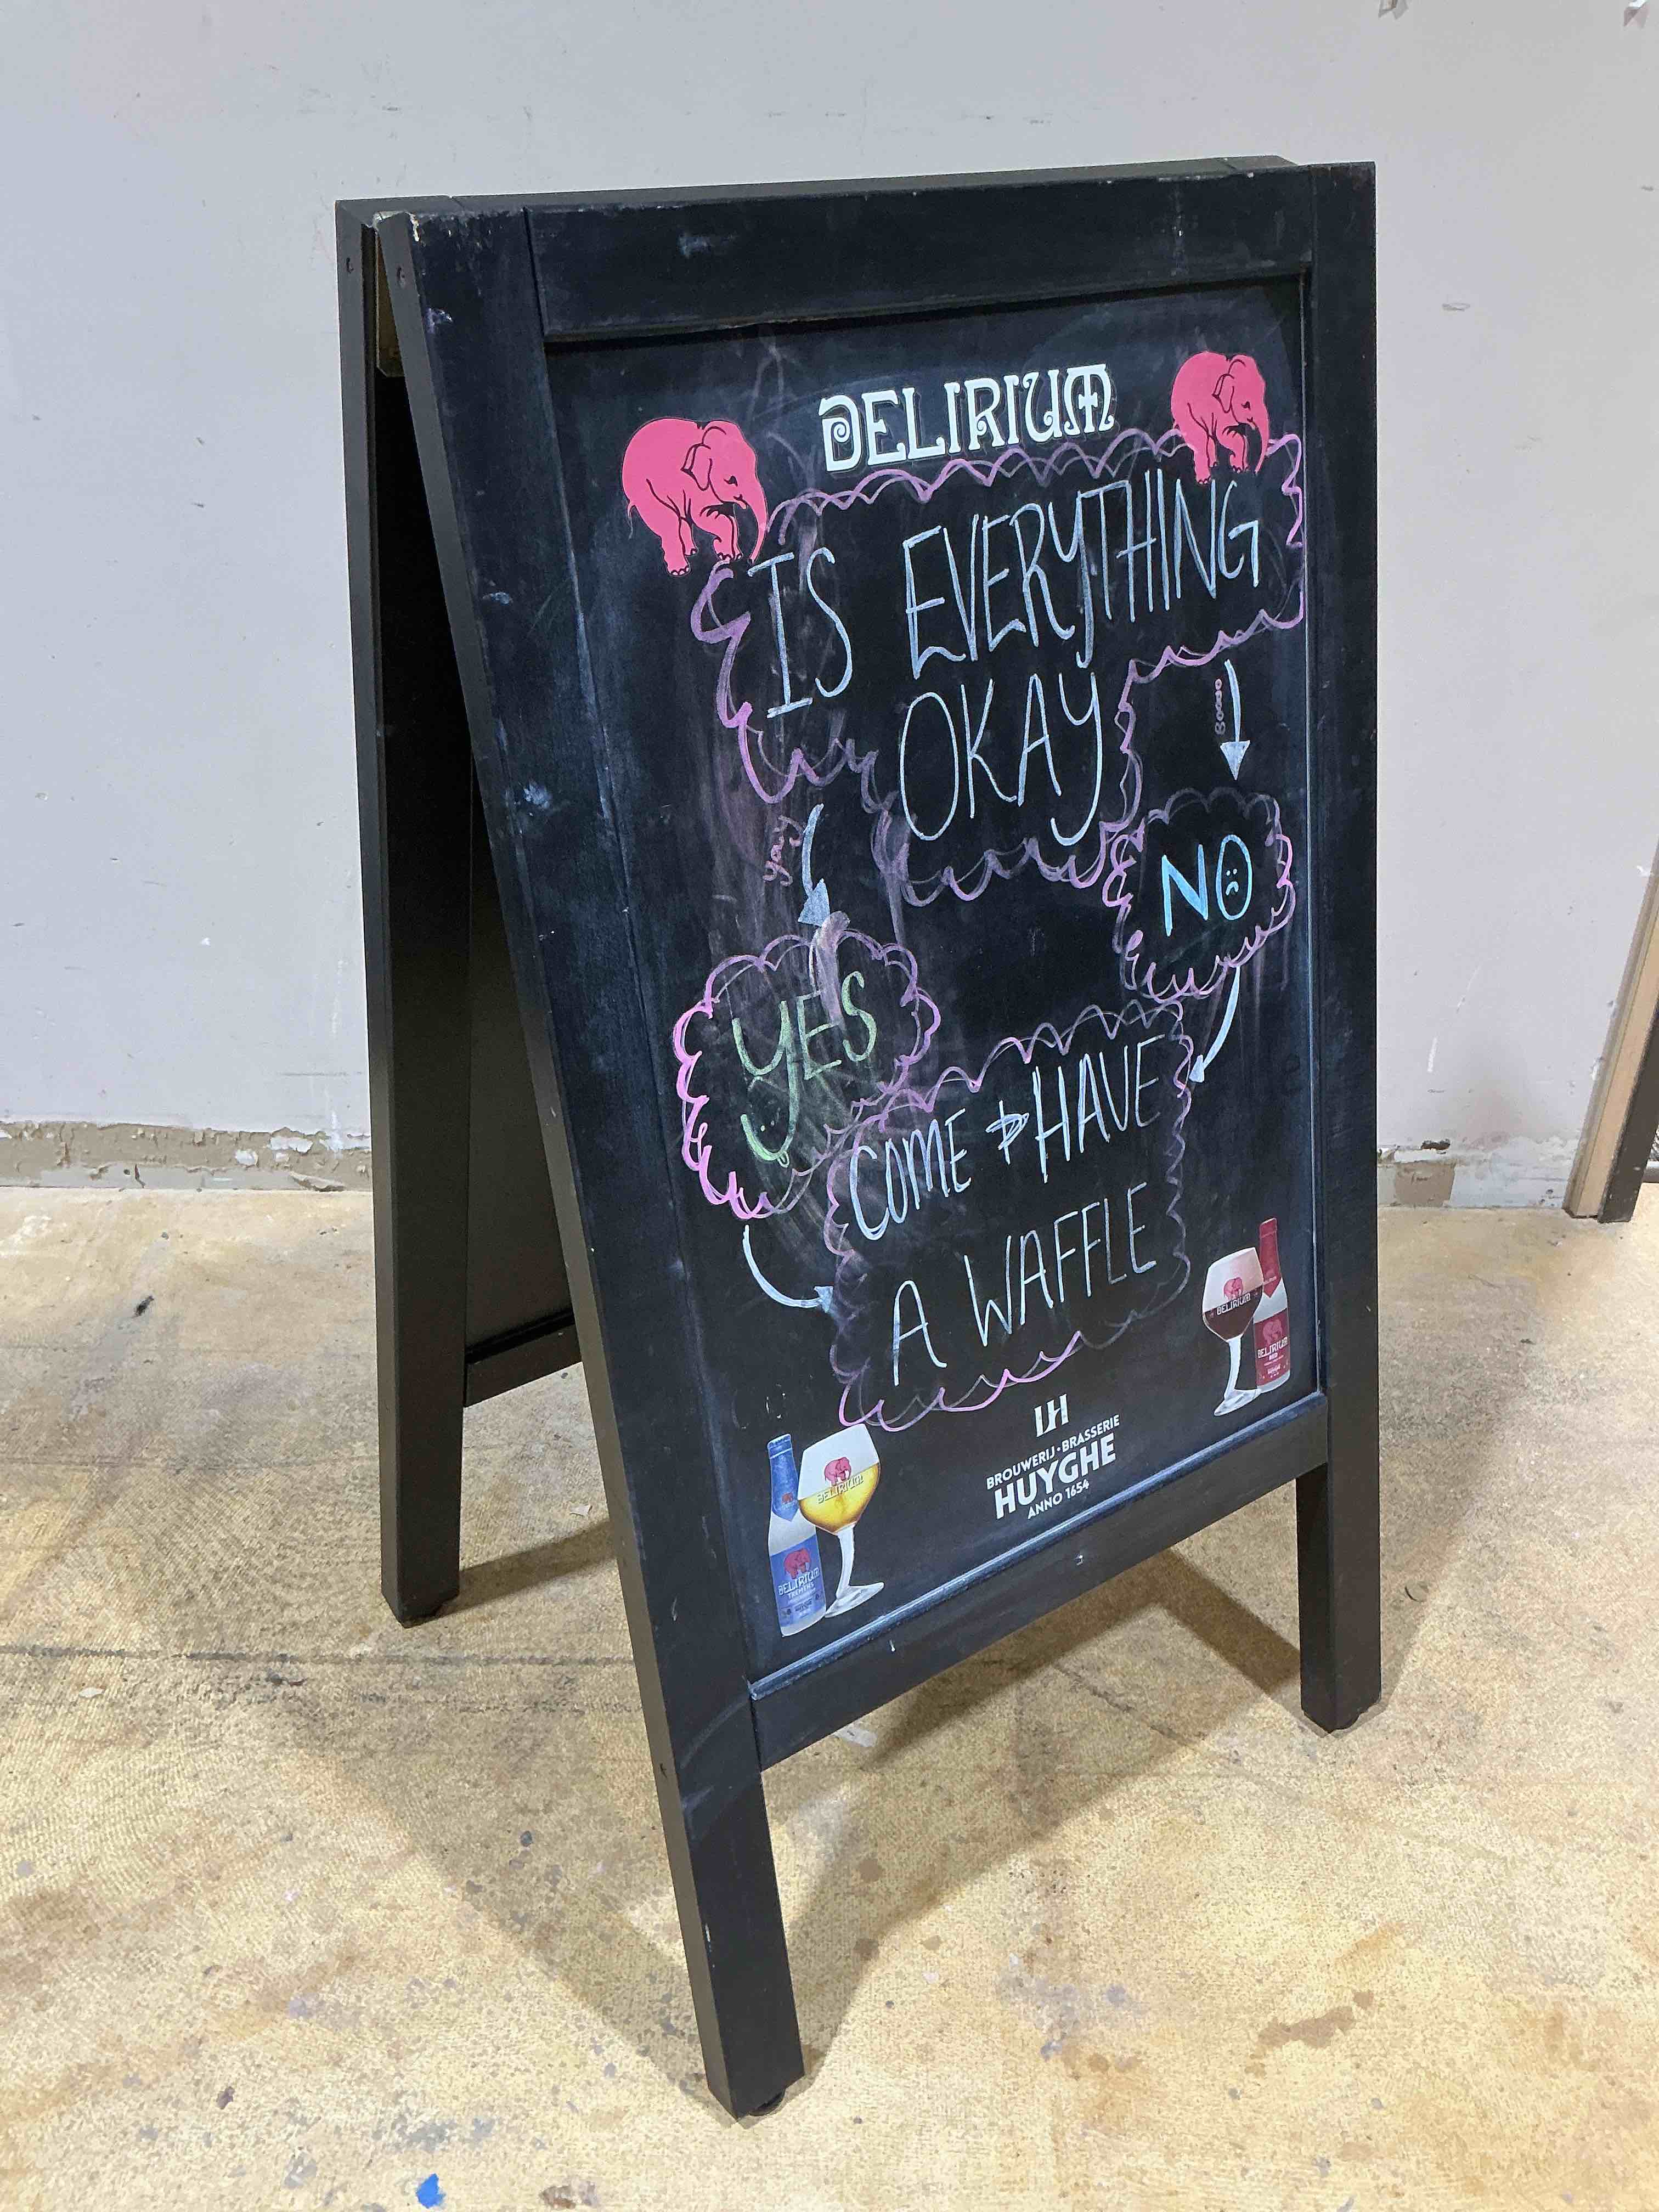 DELIRIUM
IS EVERYTHING
OKAY
Boooo
yay
NO
YES
COME & HAVE
A WAFFLE
DELIRIUM
DELIRIUM
RED
LH
BROUWERIJ·BRASSERIE
HUYGHE
ANNO 1654
DELIRIUM
DELIRIUM
TREMENS